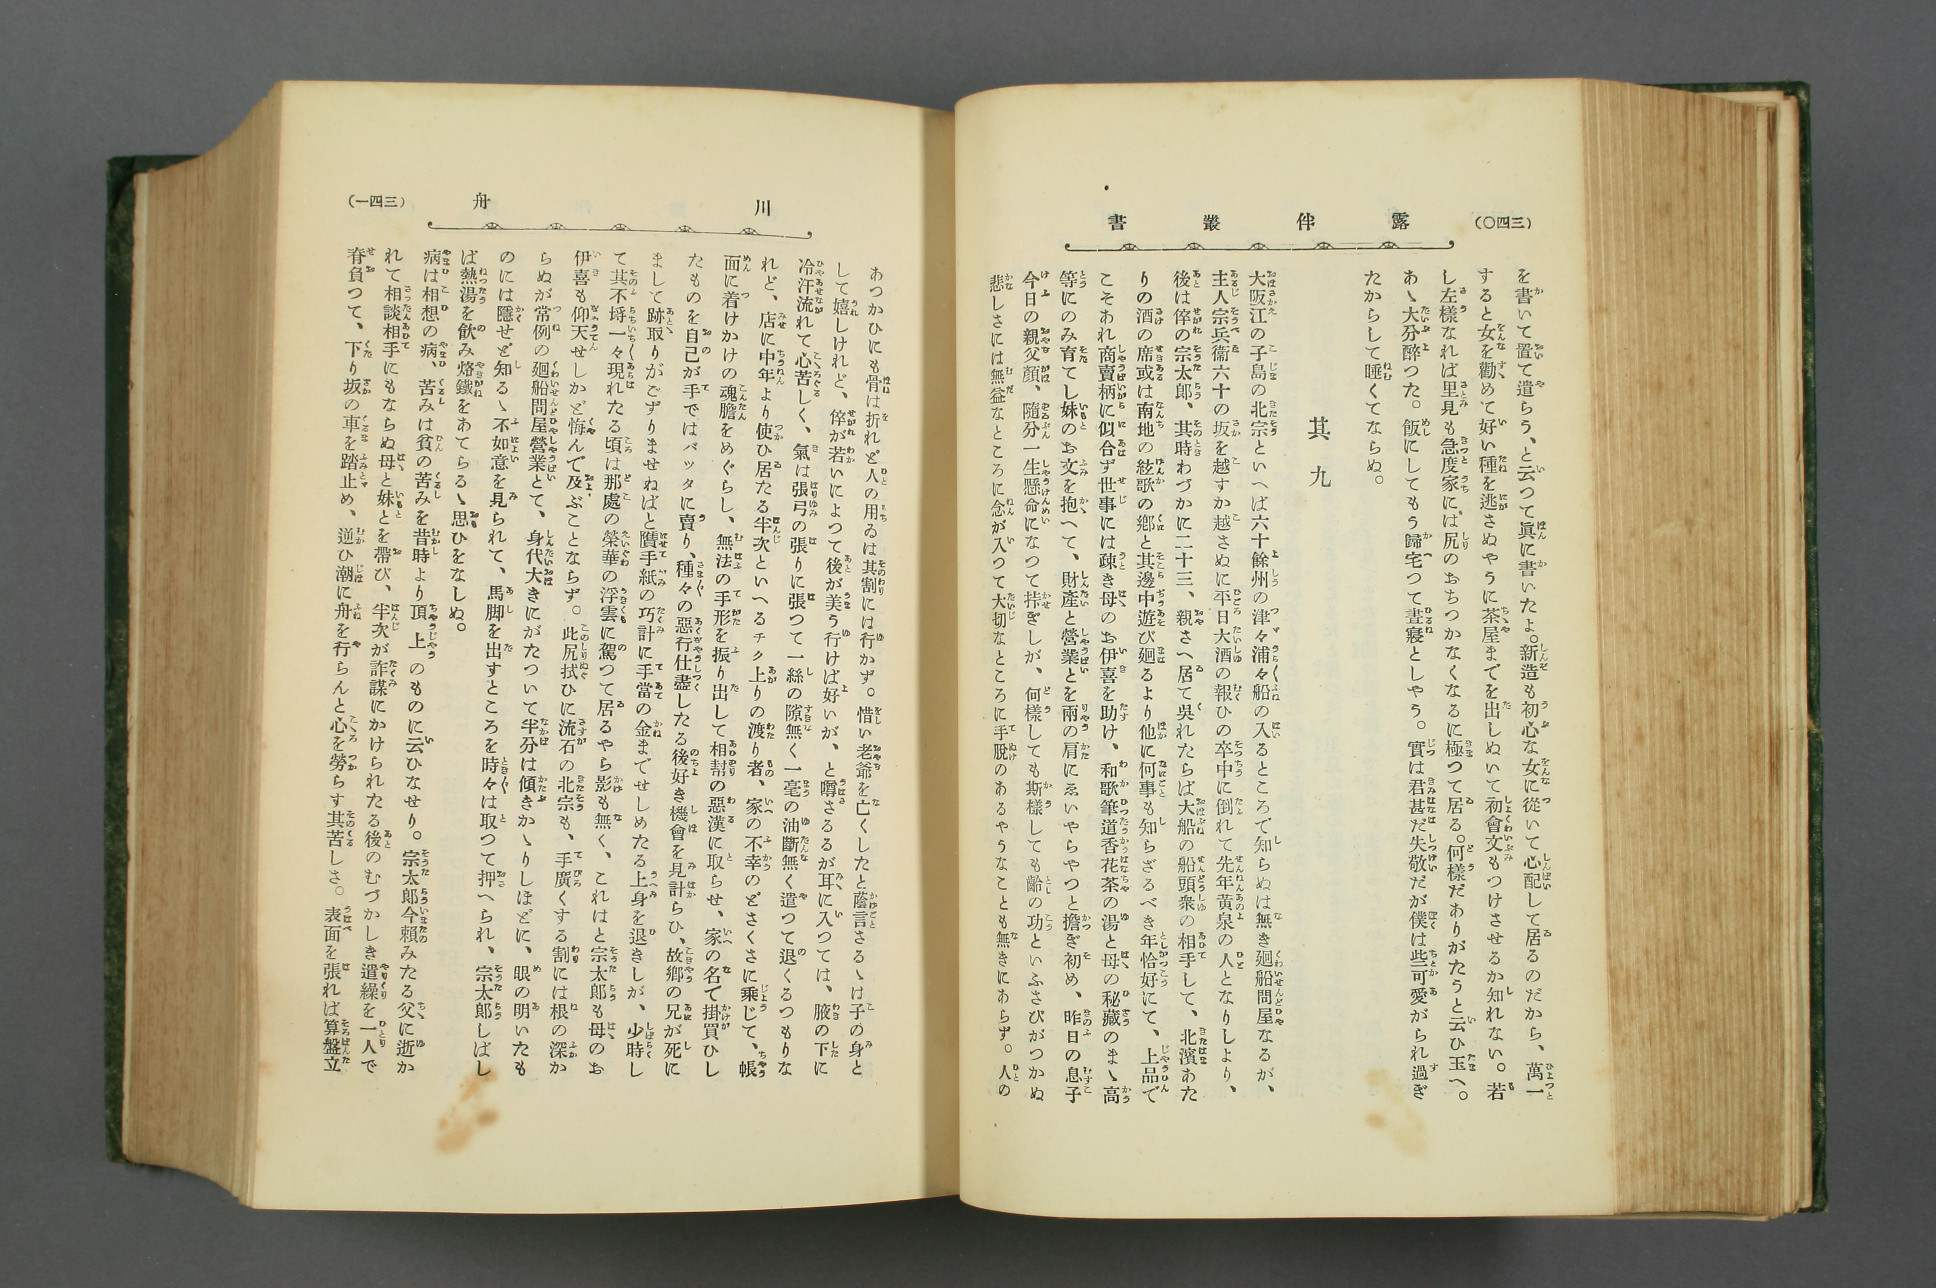 (三四〇)
露伴叢書
を書いて置て遣らう、と云つて眞に書いたよ。新造も初心な女に從いて心配して居るのだから、萬一
すると女を勸めて好い種を逃さぬやうに茶屋までを出しぬいて初會文もつけさせるか知れない。若
し左樣なれば里見も急度家には尻のおちつかなくなるに極つて居る。何樣だありがたうと云ひ玉へ。
あゝ大分醉つた。飯にしてもう歸宅つて晝寢としやう。實は君甚だ失敬だが僕は些可愛がられ過ぎ
たからして睡くてならぬ。
其九
大阪江の子島の北宗といへば六十餘州の津々浦々船の入るところで知らぬは無き廻船問屋なるが、
主人宗兵衞六十の坂を越すか越さぬに平日大酒の報ひの卒中に倒れて先年黃泉の人となりしより、
後は倅の宗太郎、其時わづかに二十三、親さへ居て吳れたらば大船の船頭衆の相手して、北濱あた
りの酒の席或は南地の絃歌の鄕と其邊中遊び廻るより他に何事も知らざるべき年恰好にて、上品で
こそあれ商賣柄に似合ず世事には疎き母のお伊喜を助け、和歌筆道香花茶の湯と母の秘藏のまゝ高
等にのみ育てし妹のお文を抱へて、財產と營業とを兩の肩にゑいやらやつと擔ぎ初め、昨日の息子
今日の親父顏、隨分一生懸命になつて拵ぎしが、何樣しても斯樣しても齡の功といふさびがつかぬ
悲しさには無益なところに念が入つて大切なところに手脫のあるやうなことも無きにあらず。人の
川舟
(三四一)
あつかひにも骨は折れど人の用ゐるは其割には行かず。惜い老爺を亡くしたと蔭言さるゝは子の身と
して嬉しけれど、倅が若いによつて後が美う行けば好いが、と噂さるるが耳に入つては、腋の下に
冷汗流れて心苦しく、氣は張弓の張りに張つて一絲の隙無く一毫の油斷無く遣つて退くるつもりな
れど、店に中年より使ひ居たる半次といへるチク上りの渡り者、家の不幸のどさくさに乘じて、帳
面に着けかけの魂膽をめぐらし、無法の手形を振り出して相幇の惡漢に取らせ、家の名で掛買ひし
たものを自己が手ではバッタに賣り、種々の惡行仕盡したる後好き機會を見計らひ、故鄕の兄が死に
まして跡取りがござりませねばと贋手紙の巧計に手當の金までせしめたる上身を退きしが、少時し
て其不埓一々現れたる頃は那處の榮華の浮雲に駕つて居るやら影も無く、これはと宗太郎も母のお
伊喜も仰天せしかど悔んで及ぶことならず。此尻拭ひに流石の北宗も、手廣くする割には根の深か
らぬが常例の廻船問屋營業とて、身代大きにがたついて半分は傾きかゝりしほどに、眼の明いたも
のには隱せど知るゝ不如意を見られて、馬脚を出すところを時々は取つて押へられ、宗太郎しばし
ば熱湯を飮み烙鐵をあてらるゝ思ひをなしぬ。
病は相想の病、苦みは貧の苦みを昔時より頂上のものに云ひなせり。宗太郎今賴みたる父に逝か
れて相談相手にもならぬ母と妹とを帶び、半次が詐謀にかけられたる後のむづかしき遣繰を一人で
脊負つて、下り坂の車を踏止め、逆ひ潮に舟を行らんと心を勞らす其苦しさ。表面を張れば算盤立